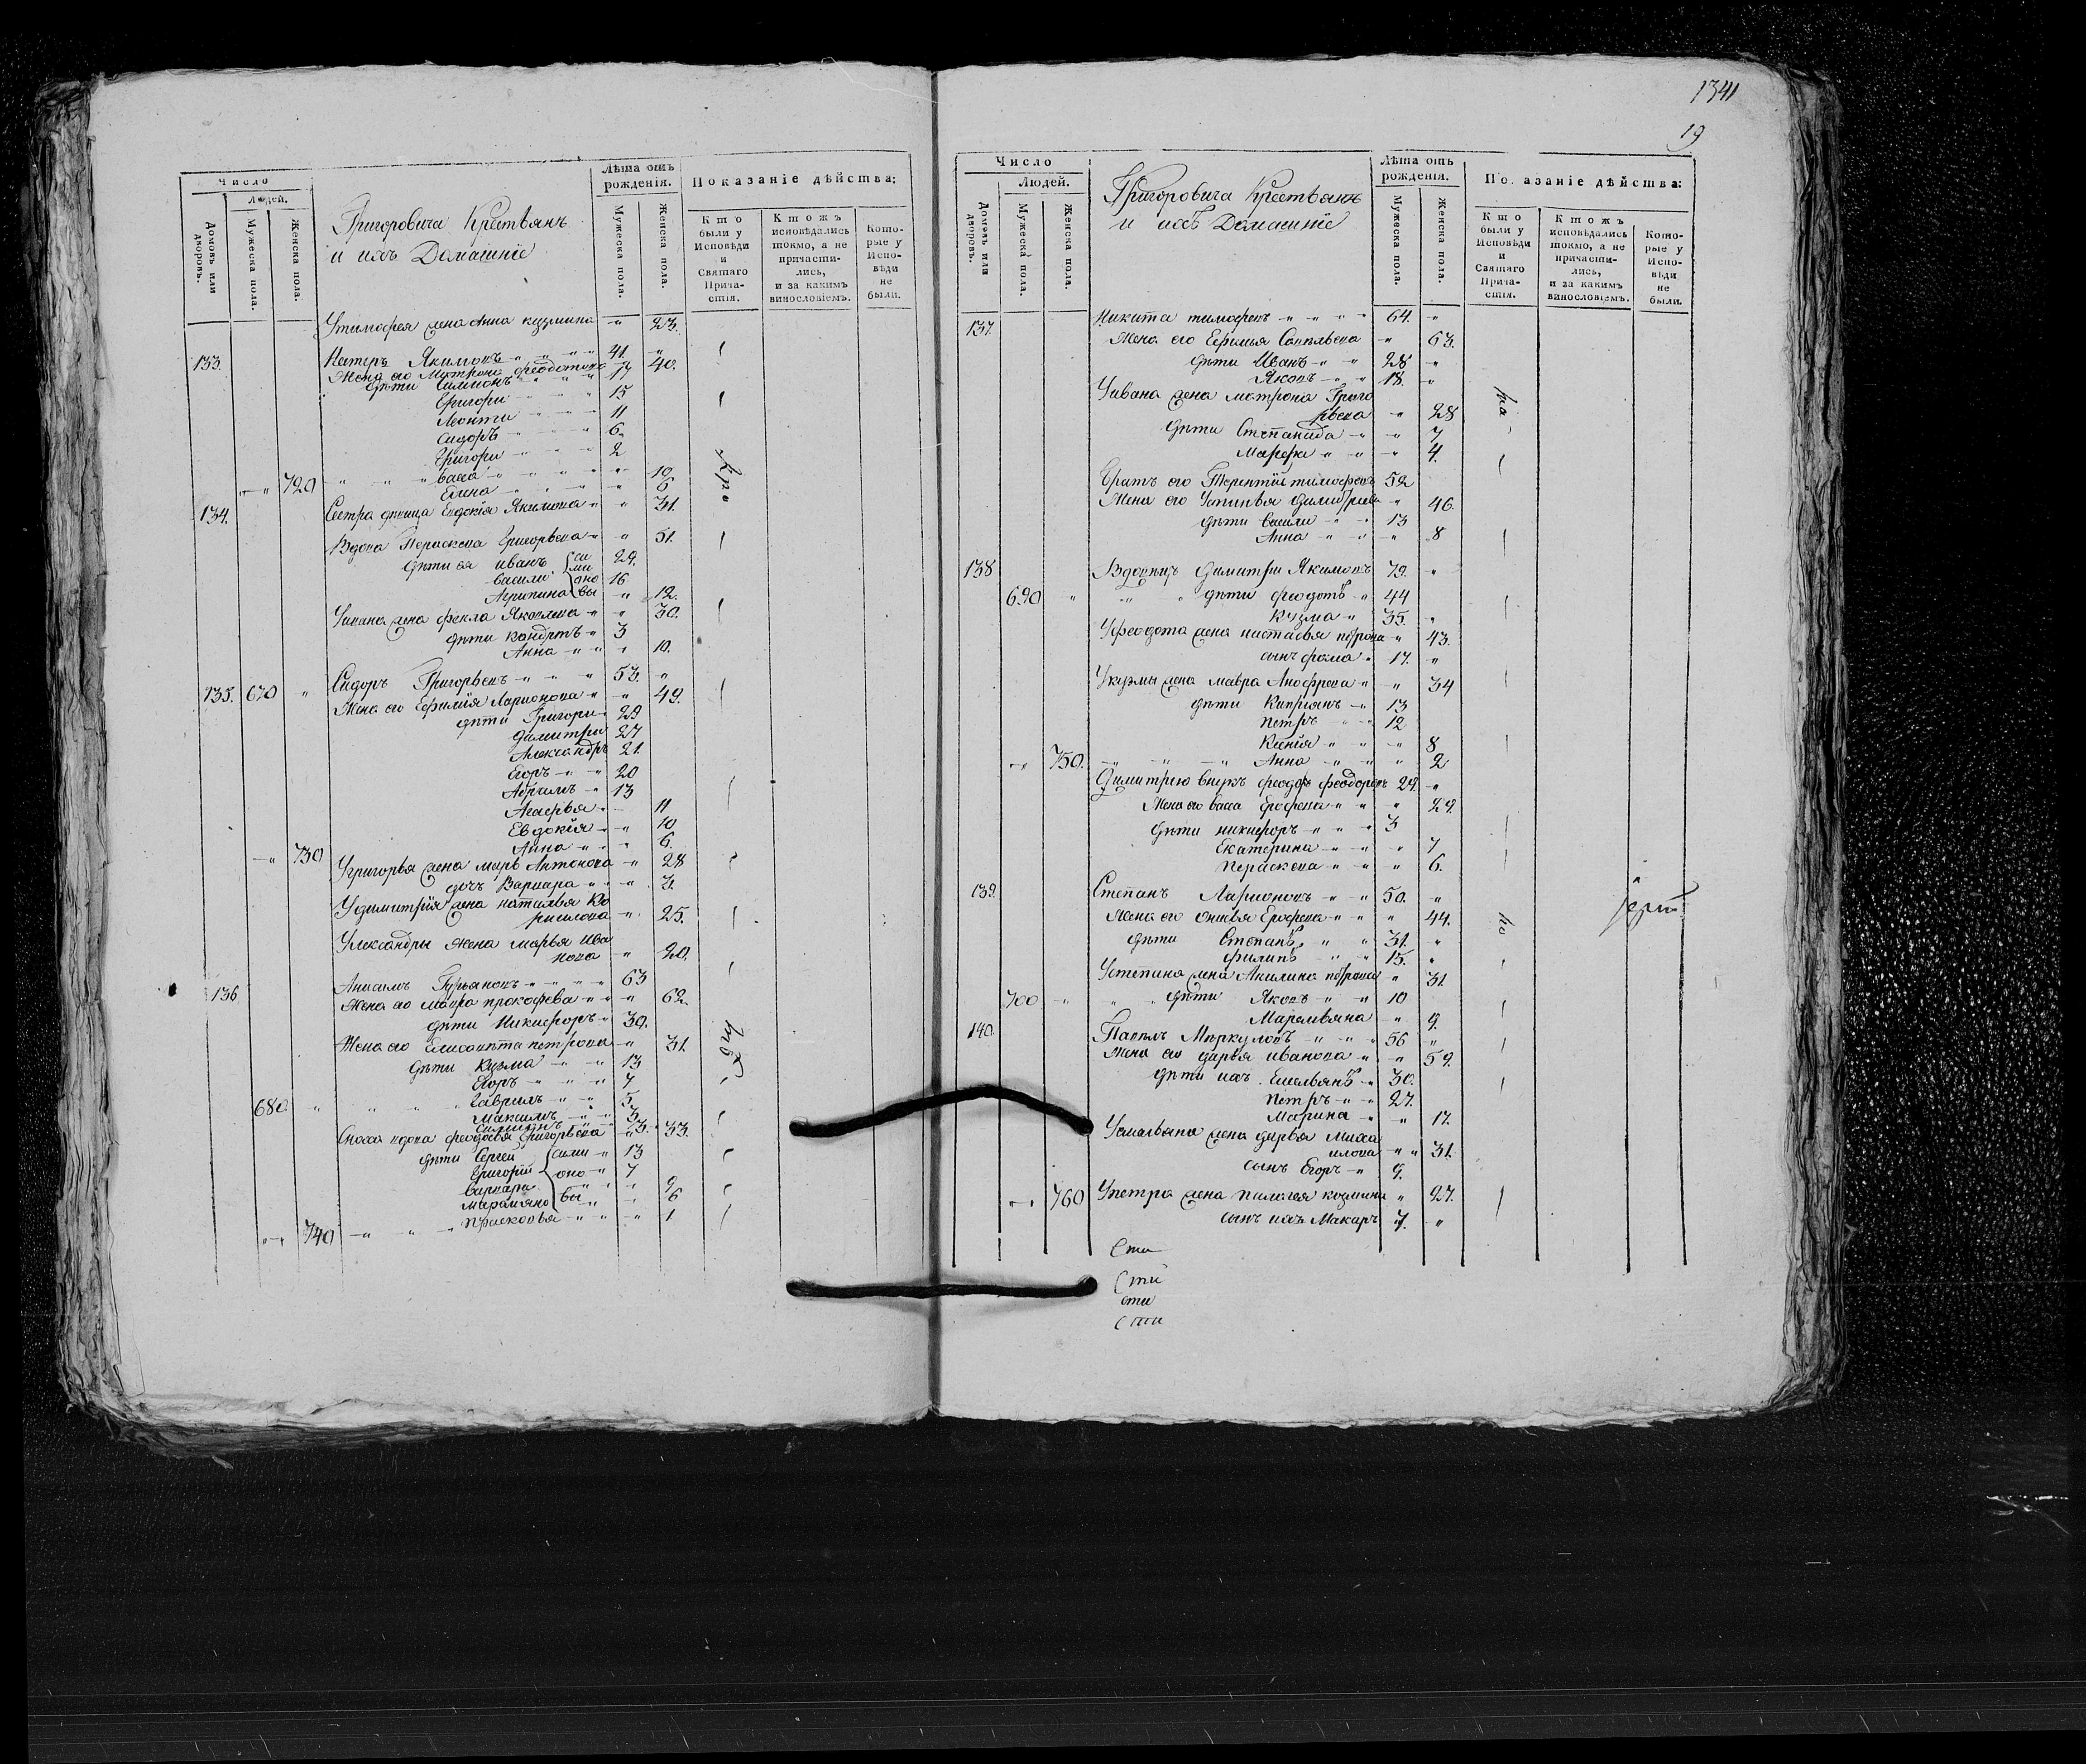 Число
Людей.
Домовъ или дворовъ.
Мужеска пола.
Женска пола.
Григоровича Крествянъ
и ихъ Домашніе
Лѣта отъ рожденія.
Мужеска пола.
Женска пола.
Показаніе дѣйства:
Кто были у Исповѣди и Святаго Прича-стія.
Ктожъ исповѣдались токмо, а не причасти-лись, и за какимъ винословіемъ.
Кото-рые у Испо-вѣди не были.
Утимофея жена Анна кузмина " 23.
133. Нестеръ Якимовъ 41. "
Жена его Матрона феодотова " 40.
дѣти Симионъ 17
Григори 15
Леонти 11
Сидоръ 6
Григори 2
васса " 10
720 Елена " 6
134. Сестра девица Евдокія Якимова " 31.
Вдова Параскева Григорвева " 51.
дѣти ея иванъ 29.
василий 16
Агрипина " 12.
симионовы
Уивана жена фекла Яковлева " 30.
дѣти кондртъ 3
Анна " 10.
135. 670 " Сидоръ Григорвевъ 53. "
Жена его Ефимия Ларионова " 49.
дѣти Григори 29
димитри 27
Александръ 21.
Егоръ 20
Абрамъ 13
Агафья 11
Евдокія 10
730 Анна 6.
Угригорья жена марь Антонова " 28
дочь Варвара " 3.
Удимитрия жена наталья Ки
рилова " 25.
Улександры жена марья Ива
нова " 20.
136 Анисимъ Гурьяновъ 63
Жена его мавра прокофева " 62.
дѣти Никифоръ 30.
Жена его Елисавѣта петрова " 31.
дѣти Кузма 13
Егоръ 7
680. " Гаврилъ 5
Максимъ 3
Симионъ
Сноха вдова феодосья Григорьева " 33.
дѣти Сергей 13
Григорий 7
варвара " 9
Марамяна " 6
симионовы
740 Прасковья " 1
1341
19
Число
Людей.
Домовъ или дворовъ.
Мужеска пола.
Женска пола.
Григоровича Крествянъ
и ихъ Домашніе
Лѣта отъ рожденія.
Мужеска пола.
Женска пола.
По. азаніе дѣйства:
Кто были у Исповѣди и Святаго Прича-стія.
Ктожъ исповѣдались токмо, а не причасти-лись, и за какимъ винословіемъ.
Кото-рые у Испо-вѣди не были.
137. Никита тимофеевъ 64. "
Жена его Ефимья Савельева " 63.
дѣти Иванъ 28 "
Яковъ 18. "
Уивана жена матрона Григо
рьева " 28
дѣти Степанида " 7
Марфа " 4.
братъ его Терентий тимофеевъ 52
Жена его Устинья димитриева " 46.
дѣти василий 13
Анна " 8
138 Вдовецъ Димитри Якимовъ 79. "
690 " дѣти феодотъ 44
Кузма 35. "
Уфеодота жена настасья петрова " 43.
сынъ фома 17. "
Укузмы жена мавра Анофрева " 34
дѣти Киприянъ 13
Петръ 12
Ксения " 8
750. Анна " 2
Димитрию внукъ феодоръ феодоровъ 29. "
Жена его васса Ерофева " 29.
дѣти никифоръ 3
Екатерина " 7
Параскева " 6.
139. Степанъ Ларионовъ 50. "
Жена его Ерофева " 44.
дѣти Степанъ 31. "
Филипъ 15. "
Устепана жена Акилина петрова " 31
700 " дѣти Яковъ 10
Марамьяна " 9.
140. Павелъ Меркуловъ 56 "
Жена его дарья иванова " 59.
дѣти ихъ Емельянъ 30.
Петръ 27.
Марина " 17.
Уемельяна жена дарья Миха
илова " 31.
сынъ Егоръ 9.
760 Упетра жена Пилагея козмина " 27.
сынъ ихъ Макаръ 7. "
Сти
Сти
сти
Сти